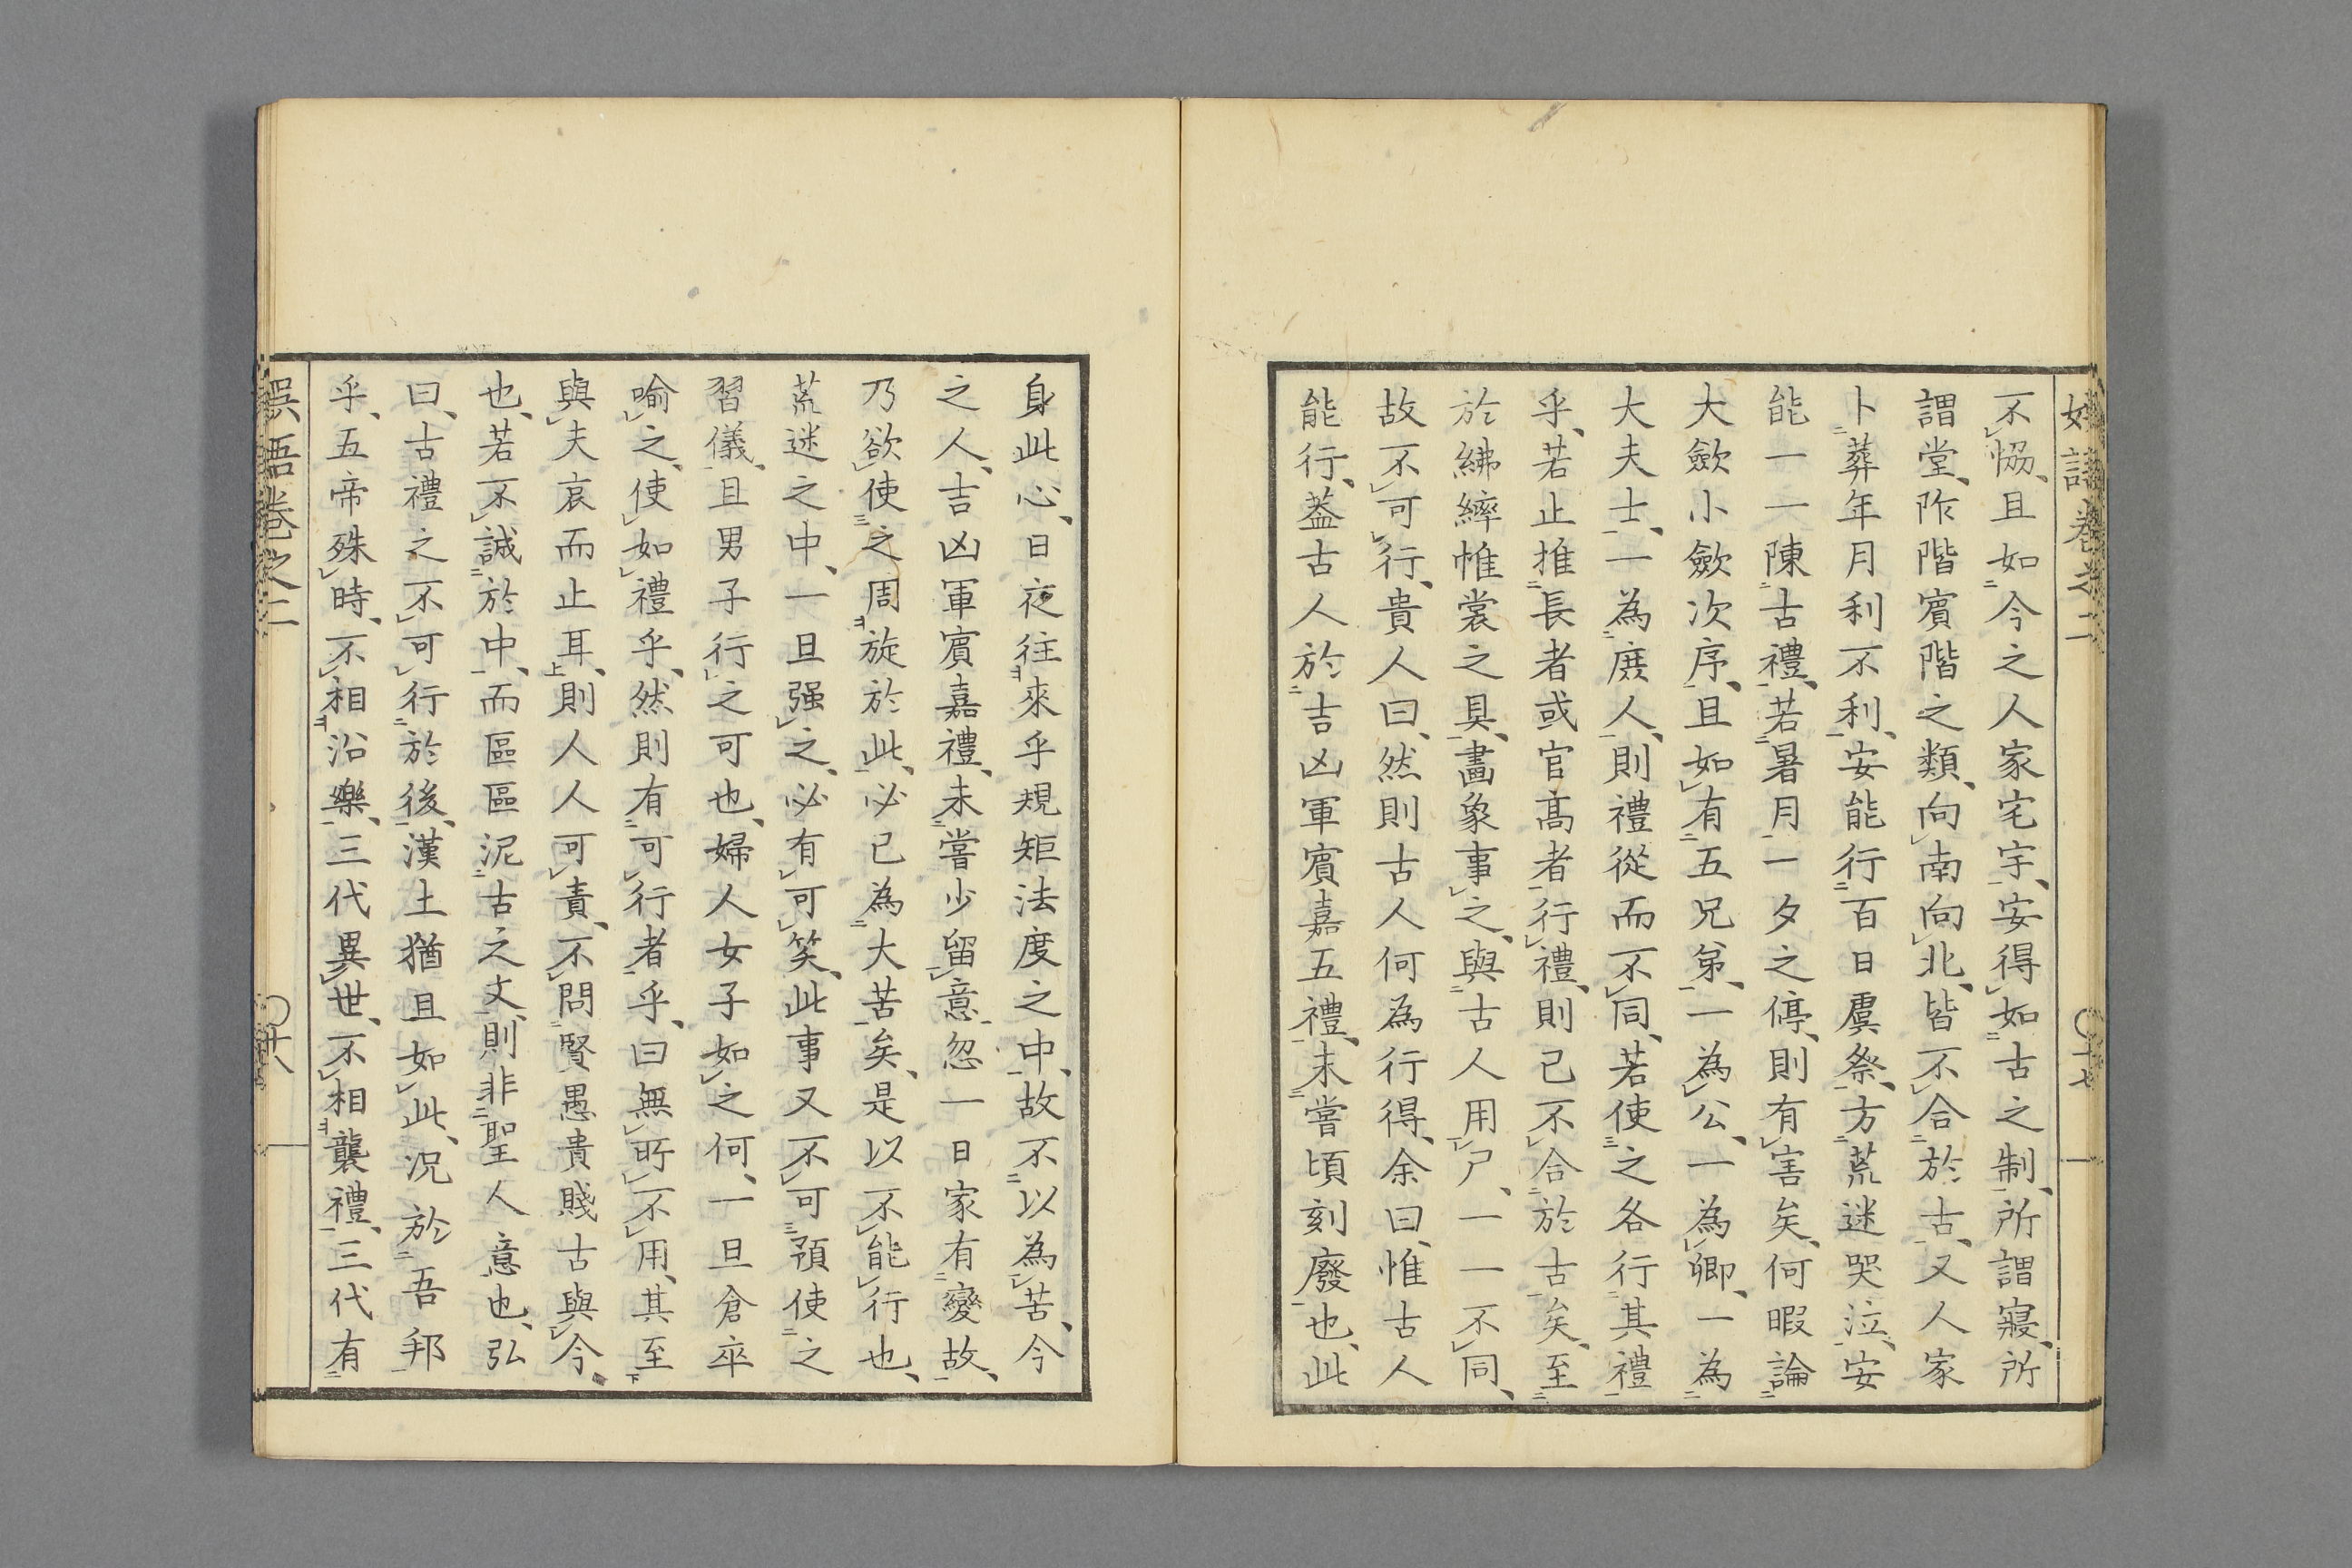 不恊、且如今之人家宅宇、安得如古之制、所謂寢、所
謂堂、阼階賓階之類、向南向北、皆不合於古、又人家
卜葬年月利不利、安能行百日虞祭、方荒迷哭泣、安
能一一陳古禮、若暑月一夕之停、則有害矣、何暇論
大斂小斂次序、且如有五兄弟、一為公、一為卿、一為
大夫士、一為庶人、則禮從而不同、若使之各行其禮
乎、若止推長者或官髙者行禮、則已不合於古矣、至
於紼繂帷裳之具、畵象事之、與古人用尸、一一不同、
故不可行、貴人曰、然則古人何為行得、余曰、惟古人
能行、葢古人於吉凶軍賓嘉五禮、未嘗頃刻廢也、此
身此心、日夜往來乎規矩法度之中、故不以為苦、今
之人、吉凶軍賓嘉禮、未嘗少留意、忽一日家有變故、
乃欲使之周旋於此、必已為大苦矣、是以不能行也、
荒迷之中、一旦强之、必有可笑、此事又不可預使之
習儀、且男子行之可也、婦人女子如之何、一旦倉卒
喻之、使如禮乎、然則有可行者乎、曰無所不用、其至
與夫哀而止耳、則人人可責、不問賢愚貴賤古與今
也、若不誠於中、而區區泥古之文、則非聖人意也、弘
曰、古禮之不可行於後、漢土猶且如此、况於吾邦
乎、五帝殊時、不相沿樂、三代異世、不相襲禮、三代有
娯語卷之二
〇廿八